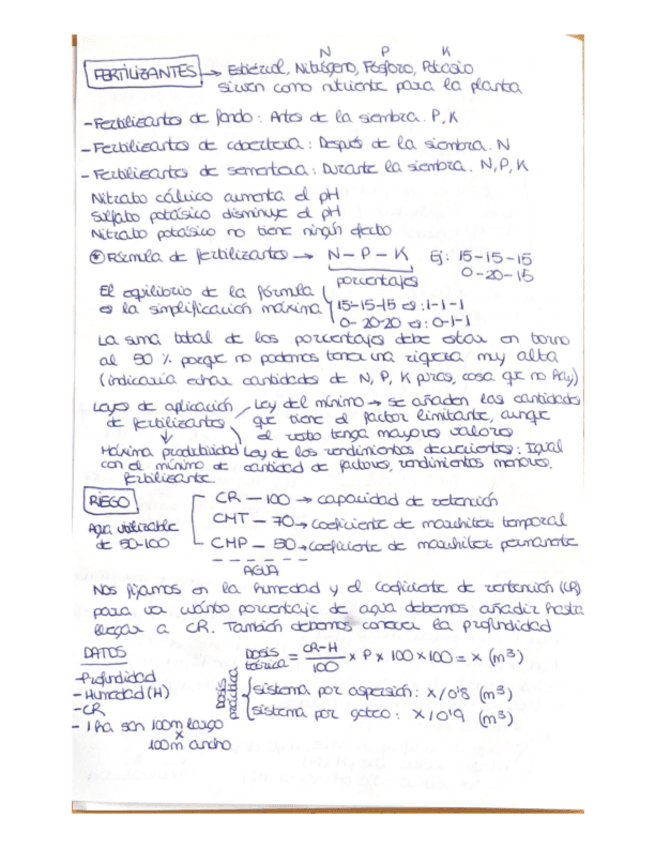 N P K
FERTILIZANTES → Estiércol, Nitrógeno, Fósforo, Potasio
sirven como nutriente para la planta
- Fertilizantes de fondo: Antes de la siembra. P, K
- Fertilizantes de cobertera: Después de la siembra. N
- Fertilizantes de sementera: Durante la siembra. N, P, K
Nitrato cálcico aumenta el pH
Sulfato potásico disminuye el pH
Nitrato potásico no tiene ningún efecto
* Fórmula de fertilizantes → N - P - K Ej: 15-15-15
0-20-15
porcentajes
El equilibrio de la fórmula
es la simplificación máxima
15-15-15 es: 1-1-1
0-20-20 es: 0-1-1
La suma total de los porcentajes debe estar en torno
al 50 % porque no podemos tener una riqueza muy alta
(indicaría echar cantidades de N, P, K puras, cosa que no hay)
Leyes de aplicación
de fertilizantes
Ley del mínimo → se añaden las cantidades
que tiene el factor limitante, aunque
el resto tenga mayores valores
Máxima productividad
con el mínimo de
fertilizante
Ley de los rendimientos decrecientes: Igual
cantidad de factores, rendimientos menores.
RIEGO
Agua utilizable
de 50-100
CR - 100 → capacidad de retención
CHT - 70 → coeficiente de marchitez temporal
CHP - 50 → coeficiente de marchitez permanente
AGUA
Nos fijamos en la humedad y el coeficiente de retención (CR)
para ver cuánto porcentaje de agua debemos añadir hasta
llegar a CR. También debemos conocer la profundidad
DATOS
- Profundidad
- Humedad (H)
- CR
- 1 Ha son 100m largo
x
100m ancho
Dosis teórica = CR-H / 100 x P x 100 x 100 = x (m³)
Dosis práctica
sistema por aspersión: x / 0'8 (m³)
sistema por goteo: x / 0'9 (m³)